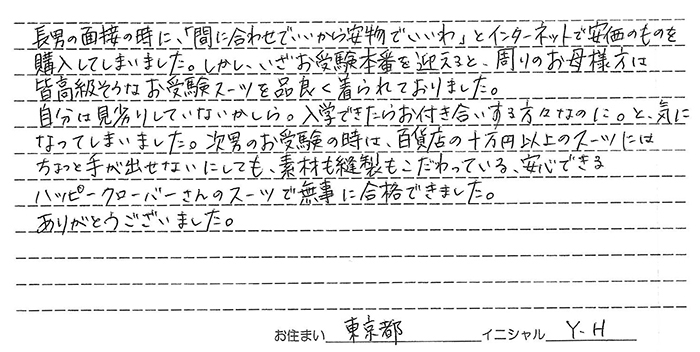 長男の面接の時に、「間に合わせでいいから安物でいいわ」とインターネットで安価のものを
購入してしまいました。しかし、いざお受験本番を迎えると、周りのお母様方は
皆高級そうなお受験スーツを品良く着られておりました。
自分は見劣りしていないかしら。入学できたらお付き合いする方々なのに。と、気に
なってしまいました。次男のお受験の時は、百貨店の十万円以上のスーツには
ちょっと手が出せないにしても、素材も縫製もこだわっている、安心できる
ハッピークローバーさんのスーツで無事に合格できました。
ありがとうございました。
お住まい 東京都 イニシャル Y.H